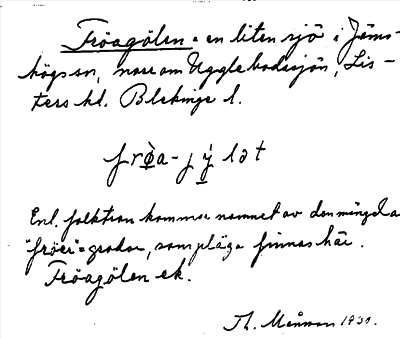 Fröagölen = en liten sjö i Jäms-
högs sn, norr om Ugglebodasjön, Lis-
ters hd. Blekinge l.
frø̀a-jy̍lət
Enl. folktron kommer namnet av den mängd a
"fröer" = grodor, som pläga finnas här.
Fröagölen ek.
Th. Månsson 1930.